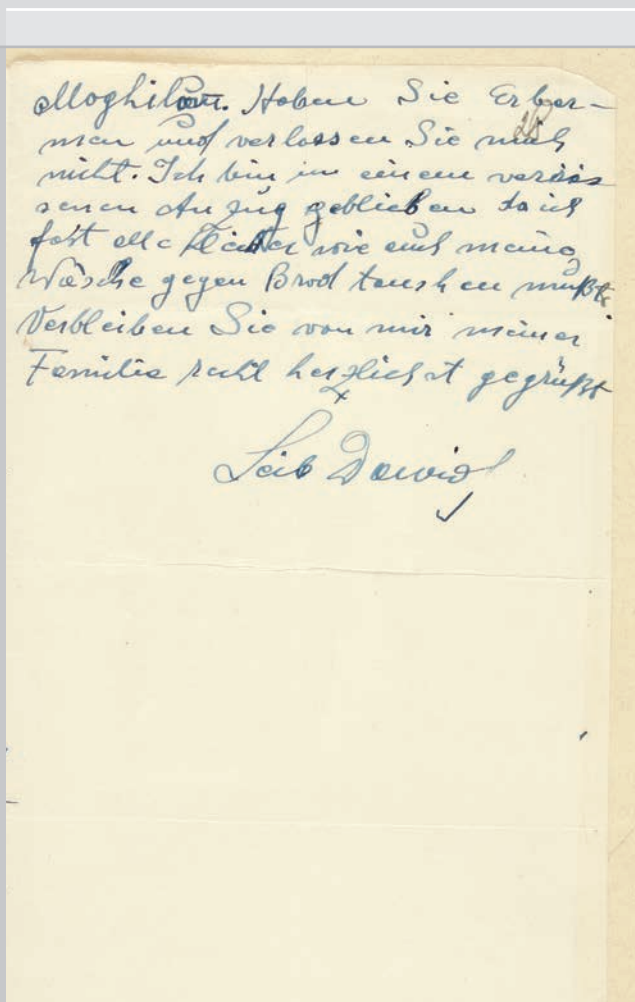 Moghilau. Haben Sie Erbar-
men und verlassen Sie mich
28
nicht. Ich bin in einem verris
senen Anzug geblieben da ich
fast alle Kleider wie auch meine
Wäsche gegen Brod tauschen mußte
Verbleiben Sie von mir meiner
Familie recht herzlichst gegrüßt
Leib Dawid